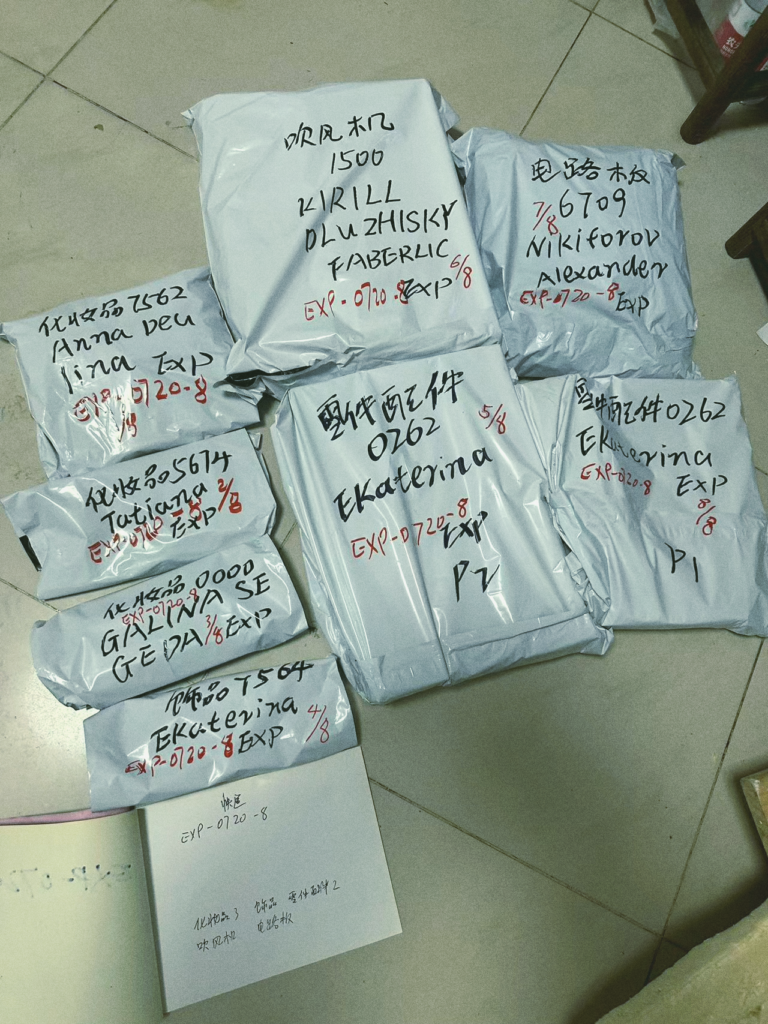 吹风机
1500
KIRILL
DLUZHISKY
FABERLIC
EXP-0720-8 EXP 6/8
电路板
7/8 6709
Nikiforov
Alexander
EXP-0720-8 EXP
化妆品7562
Anna Deu
lina EXP
EXP-0720-8
1/8
化妆品5674
Tatiana
EXP-0720-8 EXP 2/8
化妆品0000
EXP-0720-8
GALINA SE
GEDA 3/8 EXP
饰品7564
EKaterina
EXP-0720-8 EXP 4/8
零件配件
0262 5/8
EKaterina
EXP-0720-8 EXP
P2
零件配件0262
EKaterina
EXP-0720-8 EXP
8/8
P1
快运
EXP-0720-8
化妆品3 饰品 零件配件2
吹风机 电路板